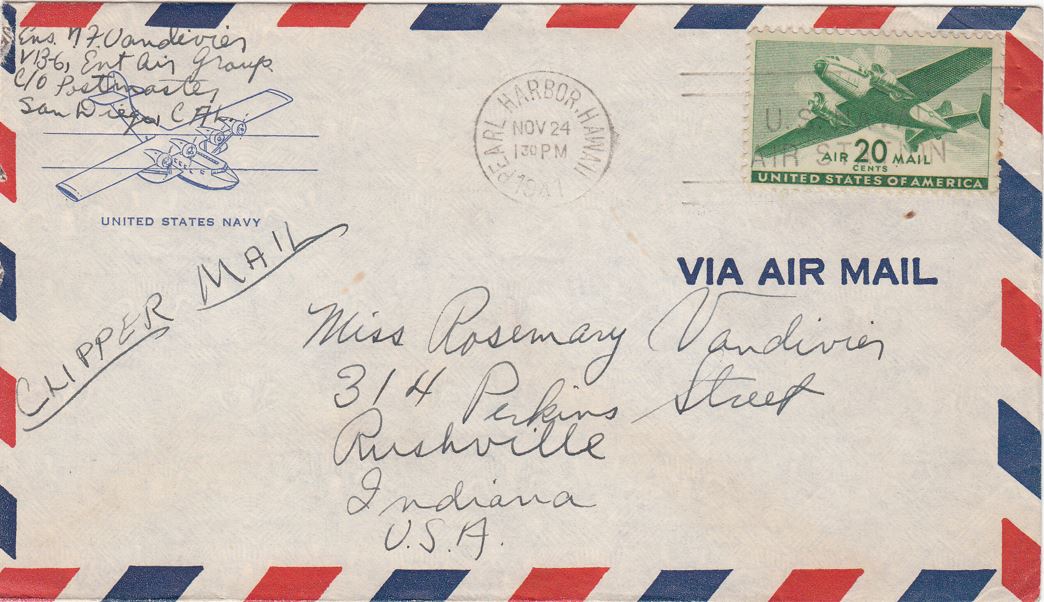 Ens N F Vandivier
VB-6, Ent Air Group
C/O Postmaster,
San Diego, CAL.
UNITED STATES NAVY
CLIPPER MAIL
PEARL HARBOR, HAWAII
NOV 24
1 30 PM
1941
U.S.
AIR STATION
AIR 20 MAIL
CENTS
UNITED STATES OF AMERICA
VIA AIR MAIL
Miss Rosemary Vandivier
314 Perkins Street
Rushville
Indiana
U.S.A.